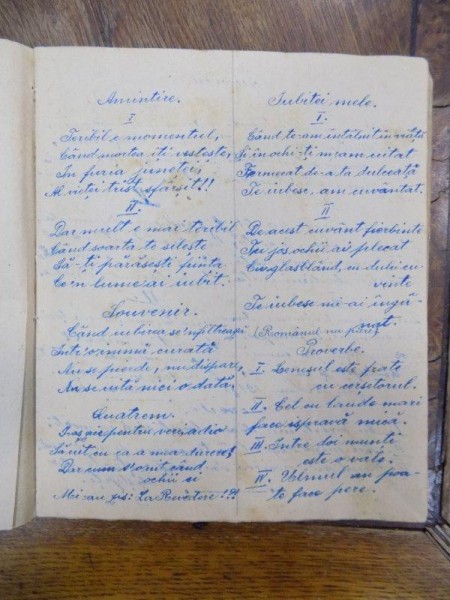 Amintire.
I
Teribil e momentul,
Când moartea îți vestește,
În furia juneței,
Al vieții trist sfârșit!!
II.
Dar mult e mai teribil
Când soarta te silește
Să-ți părăsești ființa
Ce'n lume ai iubit.
Souvenir.
Când iubirea se'nfiltrează
Într'o inimă curată
Nu se pierde, nu dispare,
Nu se uită nici o dată.
Quatrem.
pentru veri adio
Să uit cu ea a mea durere
Dar cum s'o uit când
ochii ei
Mi-au zis: La Revedere!?!
Iubitei mele.
I.
Când te-am întâlnit în viață
Și în ochi-ți m-am uitat
Farmecat de-a ta dulceață
Te iubesc, am cuvântat.
II
De acest cuvânt fierbinte
Tu jos ochii ai plecat
Cu glas blând, cu dulci cu-
vinte
Te iubesc mi-ai îngâ-
nat.
(Românul nu piere)
Proverbe.
I. Lenesul este frate
cu cersetorul.
II. Cel cu lauda mari
face ispravă mică.
III. Între doi munți
este o vale.
IV. Ulmul nu poa-
te face pere.